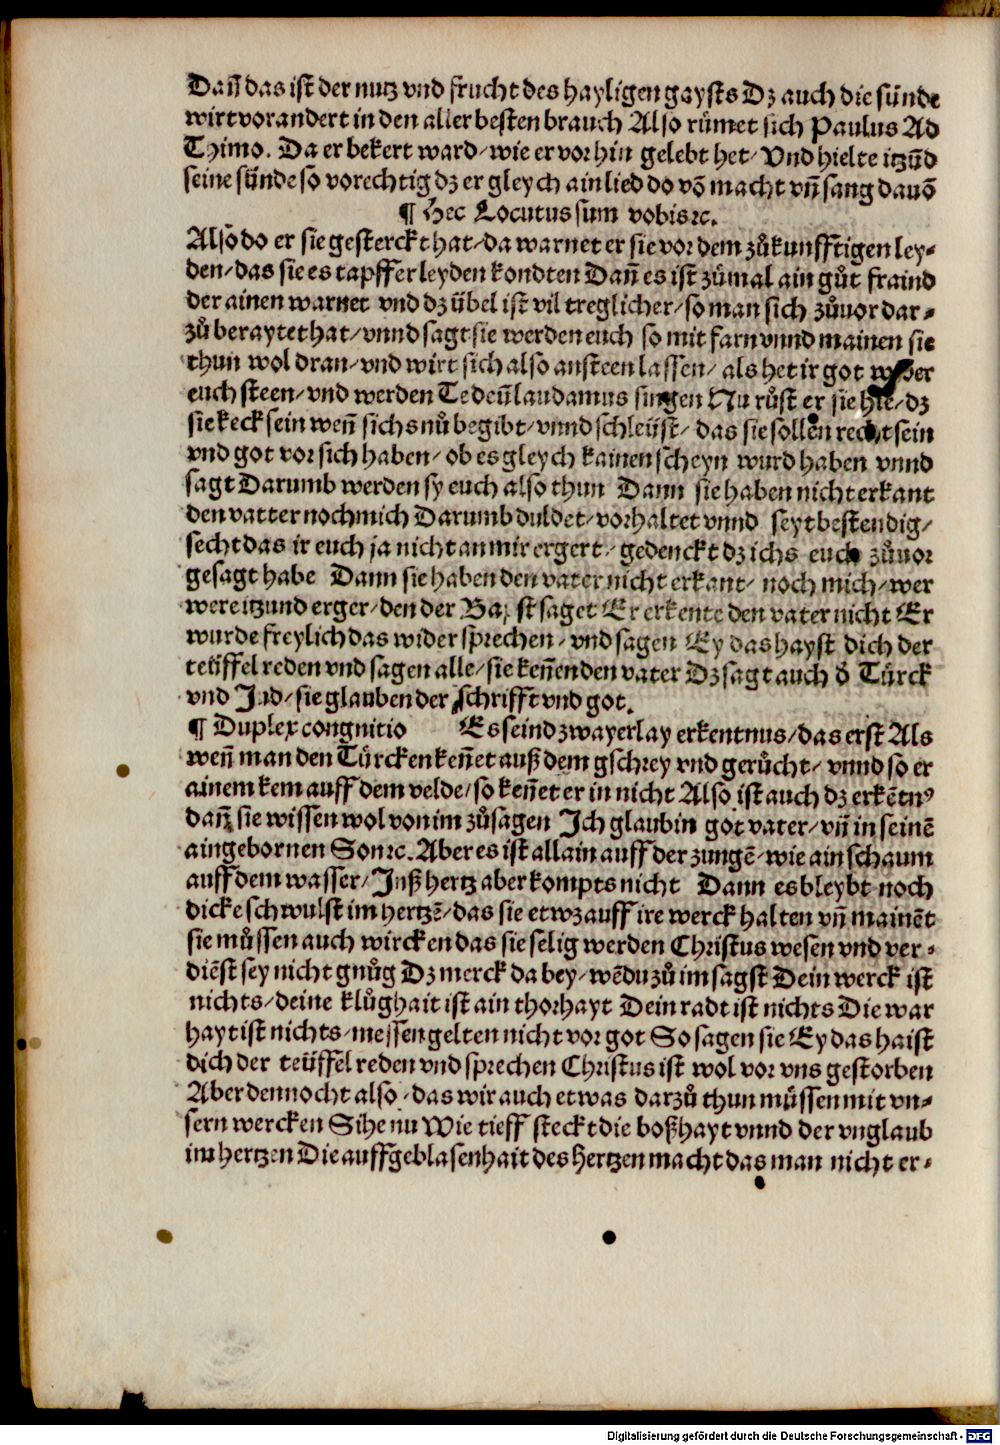 Dañ das ist der nutz vnd frucht des hayligen gaysts Dz auch die sünde
wirt vorandert in den aller besten brauch Also rümet sich Paulus Ad
Thimo. Da er bekert ward/ wie er vorhin gelebt het/ Vnd hielte itzũd
seine sünde so vorechtig dz er gleych ain lied do võ macht vñ sang dauõ
¶ Hec Locutus sum vobis ꝛc.
Also do er sie gesterckt hat/ da warnet er sie vor dem zůkunfftigen ley-
den/ das sie es tapffer leyden kondten Dañ es ist zůmal ain gůt fraind
der ainen warnet vnd dz übel ist vil treglicher/ so man sich zůuor dar-
zů beraytet hat/ vnnd sagt sie werden euch so mit farn vnnd mainen sie
thun wol dran/ vnd wirt sich also ansteen lassen/ als het ir got wider
euch steen/ vnd werden Te deũ laudamus singen Nu růst er sie hie/ dz
sie keck sein weñ sichs nů begibt/ vnnd schleüst/ das sie sollen recht sein
vnd got vor sich haben/ ob es gleych kainen scheyn wurd haben vnnd
sagt Darumb werden sy euch also thun Dann sie haben nicht erkant
den vatter noch mich Darumb duldet/ vorhaltet vnnd seyt bestendig/
secht das ir euch ja nicht an mir ergert/ gedenckt dz ichs euch zůuor
gesagt habe Dann sie haben den vater nicht erkant/ noch mich/ wer
were itzund erger/ den der Bapst saget Er erkente den vater nicht Er
wurde freylich das wider sprechen/ vnd sagen Ey das hayst dich der
teüffel reden vnd sagen alle/ sie keñen den vater Dz sagt auch ð Türck
vnd Jud/ sie glauben der schrifft vnd got.
¶ Duplex congnitio Es seind zwayerlay erkentnus/ das erst Als
weñ man den Türcken keñet auß dem gschrey vnd gerůcht/ vnnd so er
ainem kem auff dem velde/ so keñet er in nicht Also ist auch dz erkẽtnꝰ
dañ sie wissen wol von im zůsagen Ich glaub in got vater/ vñ in seinẽ
aingebornen Son ꝛc. Aber es ist allain auff der zungẽ/ wie ain schaum
auff dem wasser/ Inß hertz aber kompts nicht Dann es bleybt noch
dicke schwulst im hertzẽ/ das sie etwz auff ire werck halten vñ mainẽt
sie můssen auch wircken das sie selig werden Christus wesen vnd ver-
diẽst sey nicht gnůg Dz merck da bey/ wẽ du zů im sagst Dein werck ist
nichts/ deine klůghait ist ain thorhayt Dein radt ist nichts Die war
hayt ist nichts/ messen gelten nicht vor got So sagen sie Ey das haist
dich der teüffel reden vnd sprechen Christus ist wol vor vns gestorben
Aber dennocht also/ das wir auch etwas darzů thun müssen mit vn-
sern wercken Sihe nu Wie tieff steckt die boßhayt vnnd der vnglaub
im hertzen Die auffgeblasenhait des hertzen macht das man nicht er-
Digitalisierung gefördert durch die Deutsche Forschungsgemeinschaft - DFG